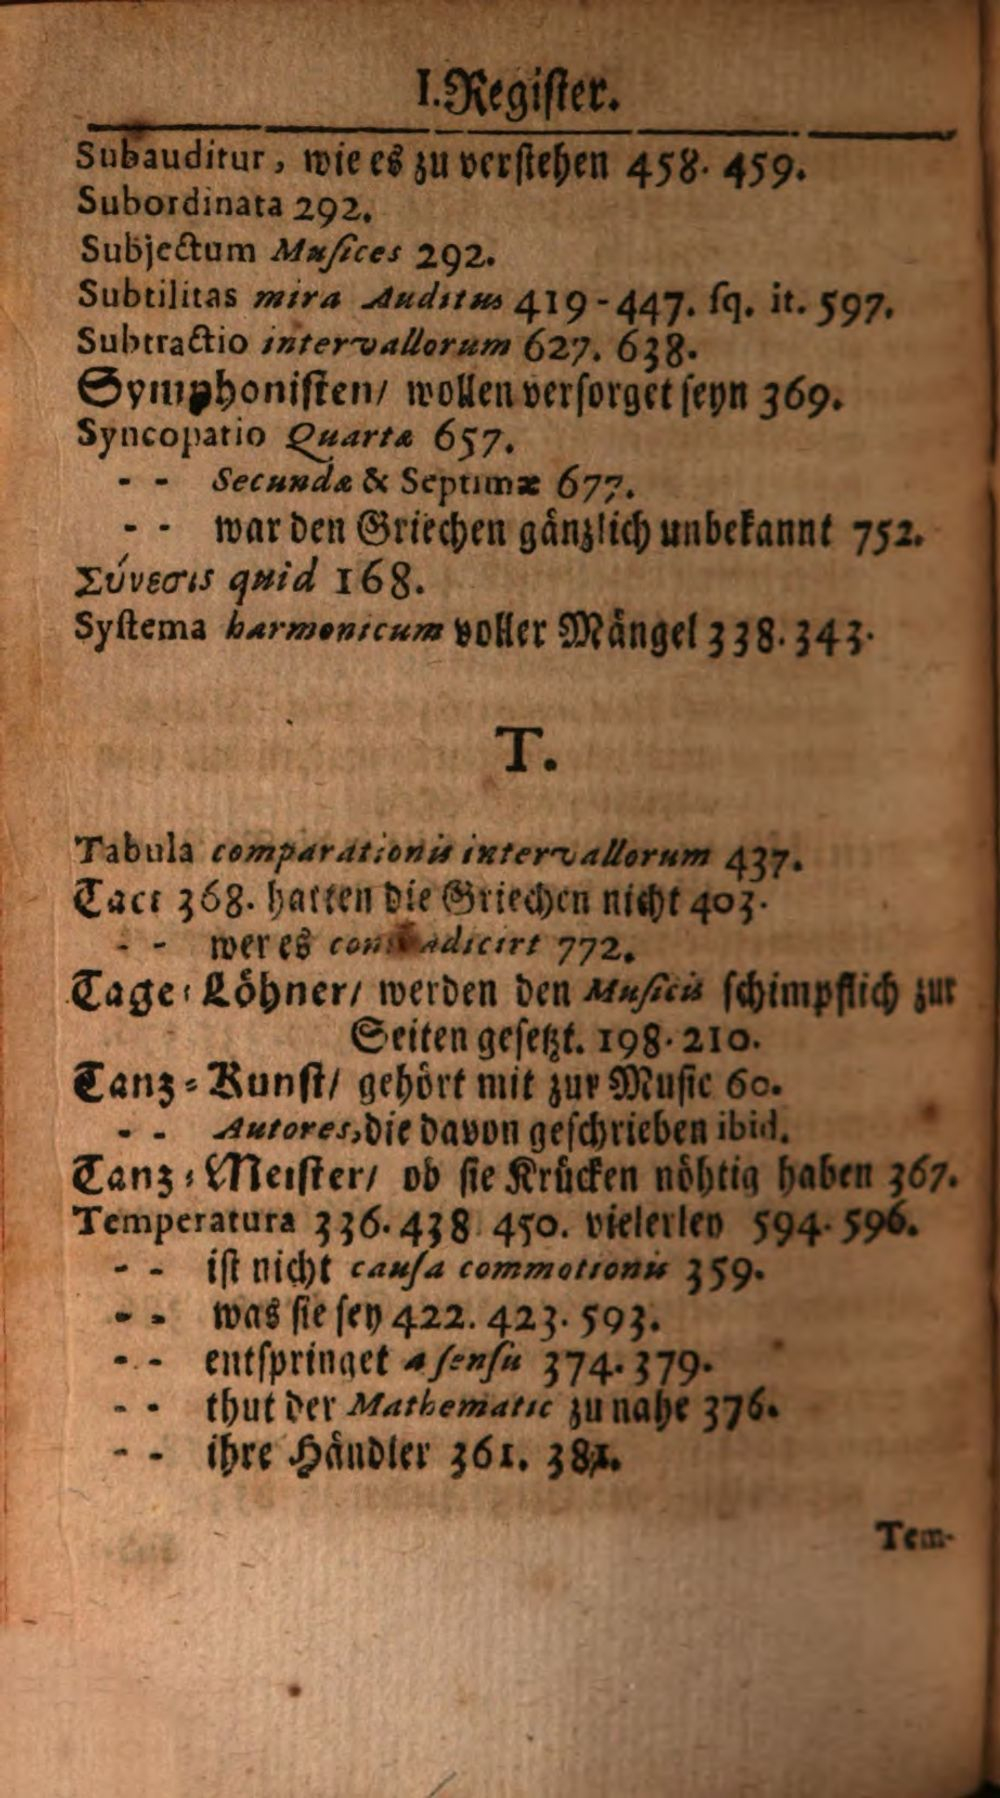 I. Register.
Subauditur, wie es zu verstehen 458. 459.
Subordinata 292.
Subjectum Musices 292.
Subtilitas mira Auditus 419-447. sq. it. 597.
Subtractio intervallorum 627. 638.
Symphonisten/ wollen versorget seyn 369.
Syncopatio Quartæ 657.
- - Secundæ & Septimæ 677.
- - war den Griechen gäntzlich unbekannt 752.
Σύνεσις quid 168.
Systema harmonicum voller Mängel 338. 343.
T.
Tabula comparationis intervallorum 437.
Tact 368. hatten die Griechen nicht 403.
- - wer es contradicirt 772.
Tage-Löhner/ werden den Musicis schimpflich zur
Seiten gesetzt. 198. 210.
Tanz-Kunst/ gehört mit zur Music 60.
- - Autores, die davon geschrieben ibid.
Tanz-Meister/ ob sie Krücken nöhtig haben 367.
Temperatura 336. 438. 450. vielerley 594. 596.
- - ist nicht causa commotionis 359.
- - was sie sey 422. 423. 593.
- - entspringet a sensu 374. 379.
- - thut der Mathematic zu nahe 376.
- - ihre Händler 361. 381.
Tem-